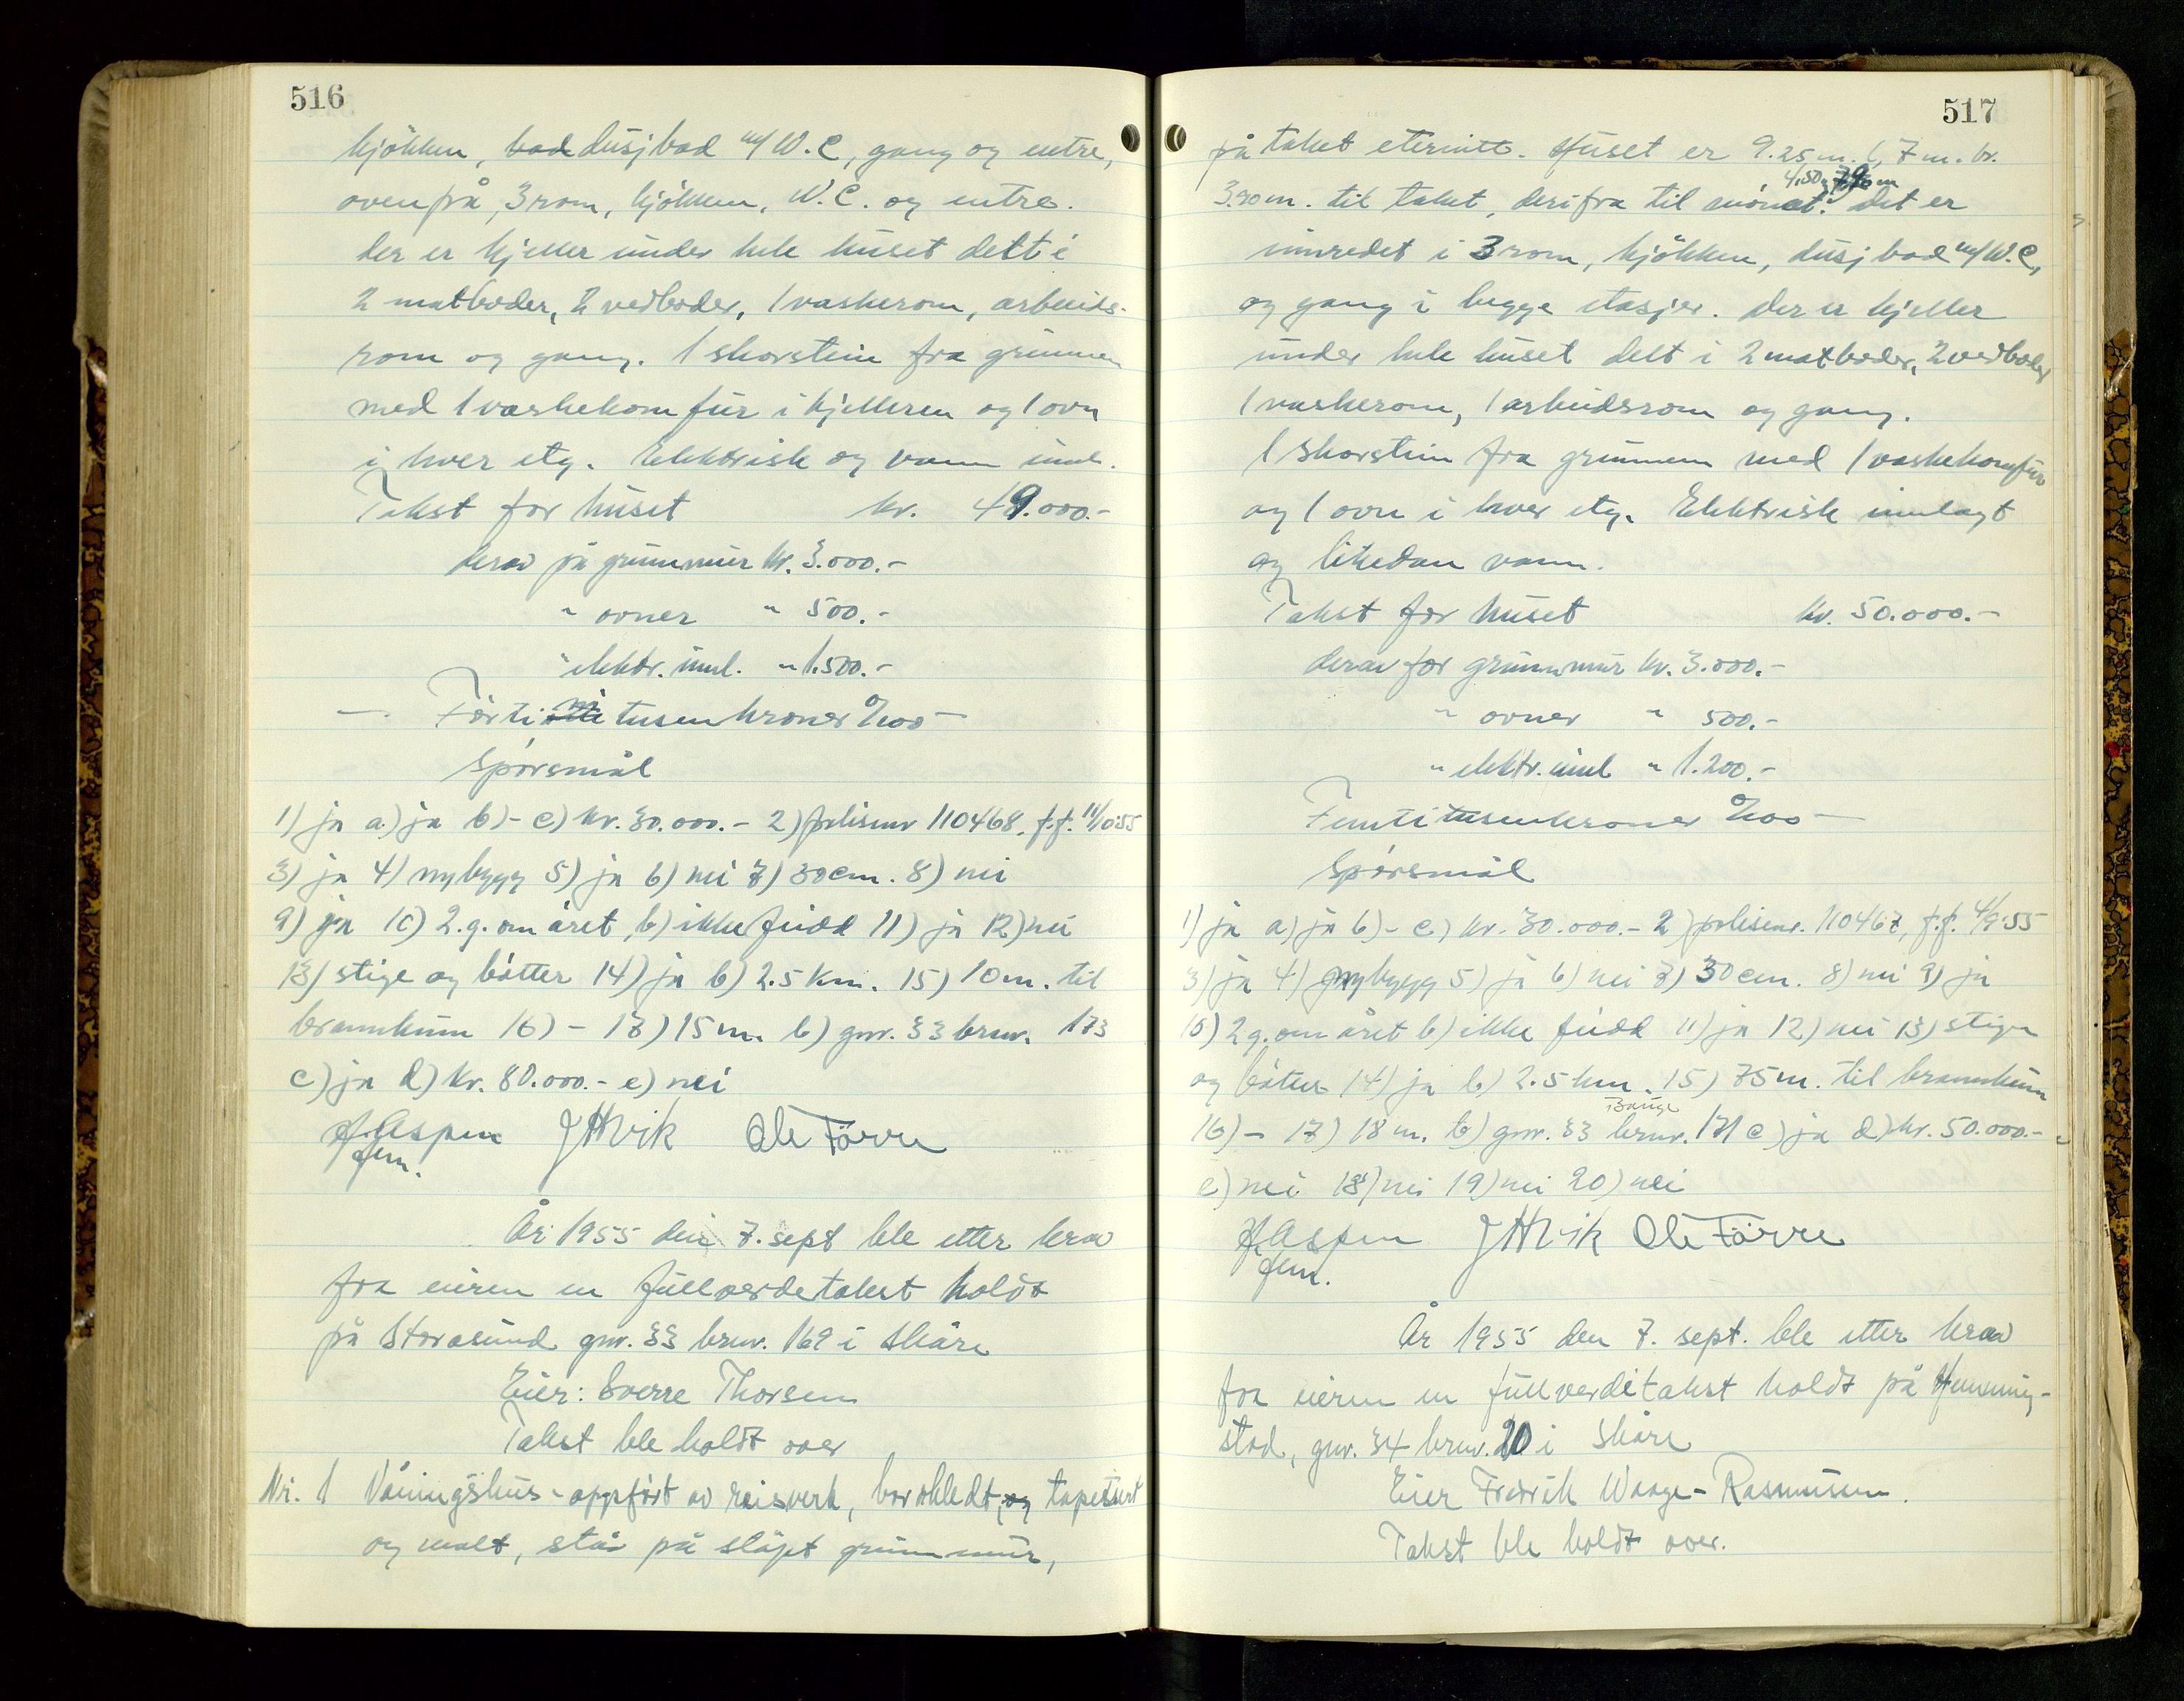 516
kjökken, bad dusjbad m/W.C, gang og entre,
ovenpå, 3 rom, kjökken, W.C. og entre.
der er kjeller under hele huset delt i
2 matboder, 2 vedboder, 1 vaskerom, arbeids-
rom og gang. 1 skorstein fra grunnen
med 1 vaskekomfur i kjelleren og 1 ovn
i hver etg. Elektrisk og vann innl.
Takst for huset kr. 49.000.-
derav på grunnmur kr. 3.000.-
" ovner " 500.-
" elektr. innl. " 1.500.-
— Förti ni tusen kroner 0/100 —
Spörsmål
1) ja a) ja b) - c) kr. 30.000.- 2) polisenr 110468, f.f. 11/10.55
3) ja 4) nybygg 5) ja 6) nei 7) 30 cm. 8) nei
9) ja 10) 2.g. om året, b) ikke feidd 11) ja 12) nei
13) stige og bötter 14) ja b) 2.5 km. 15) 10 m. til
brannkum 16) - 17) 15 m. b) gnr. 33 brnr. 173
c) ja d) kr. 80.000.- e) nei
A Aspen JHVik Ole Förre
fem.
År 1955 den 7. sept ble etter krav
fra eieren en fullverdetakst holdt
på Storasund gnr. 33 brnr. 169 i Skåre
Eier: Sverre Thorsen
Takst ble holdt over
Nr. 1 Våningshus - oppfört av reisverk, bordkledt, og tapetsert
og malt, står på stöpt grunnmur,
517
på taket eternitt. Huset er 9.25 m. l, 7 m. br.
4.50 m
3.90 m. til taket, derifra til mönet. det er
innredet i 3 rom, kjökken, dusjbad m/W.C,
og gang i begge etasjer. der er kjeller
under hele huset delt i 2 matboder, 2 vedboder
1 vaskerom, 1 arbeidsrom og gang.
1 skorstein fra grunnen med 1 vaskekomfur
og 1 ovn i hver etg. Elektrisk innlagt
og likedan vann.
Takst for huset kr. 50.000.-
derav for grunnmur kr. 3.000.-
" ovner " 500.-
" elektr. innl " 1.200.-
Femti tusenkroner 0/100 —
Spörsmål
1) ja a) ja b) - c) kr. 30.000.- 2) polisenr. 110467, f.f. 4/9.55
3) ja 4) nybygg 5) ja 6) nei 7) 30 cm. 8) nei 9) ja
10) 2 g. om året b) ikke feidd 11) ja 12) nei 13) stige
og bötter 14) ja b) 2.5 km. 15) 75 m. til brannkum
16) - 17) 18 m. b) gnr. 33 brnr. 171 c) ja d) kr. 50.000.-
e) nei 18) nei 19) nei 20) nei
A Aspen JHVik Ole Förre
fem.
År 1955 den 7. sept. ble etter krav
fra eieren en fullverditakst holdt på Henning-
stad, gnr. 34 brnr. 20 i Skåre
Eier Fredrik Waage - Rasmussen.
Takst ble holdt over.